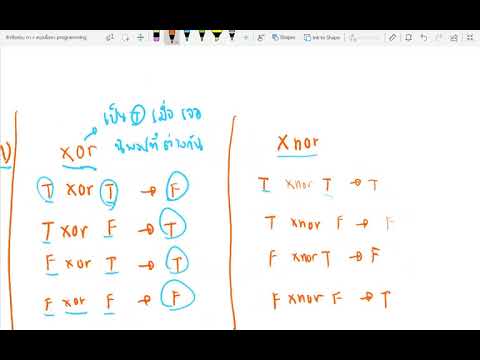 Shapes Ink to Shape
เป็น T เมื่อ เจอ
นิพจน์ที่ ต่างกัน
xor
T xor T → F
T xor F → T
F xor T → T
F xor F → F
xnor
T xnor T → T
T xnor F → F
F xnor T → F
F xnor F → T